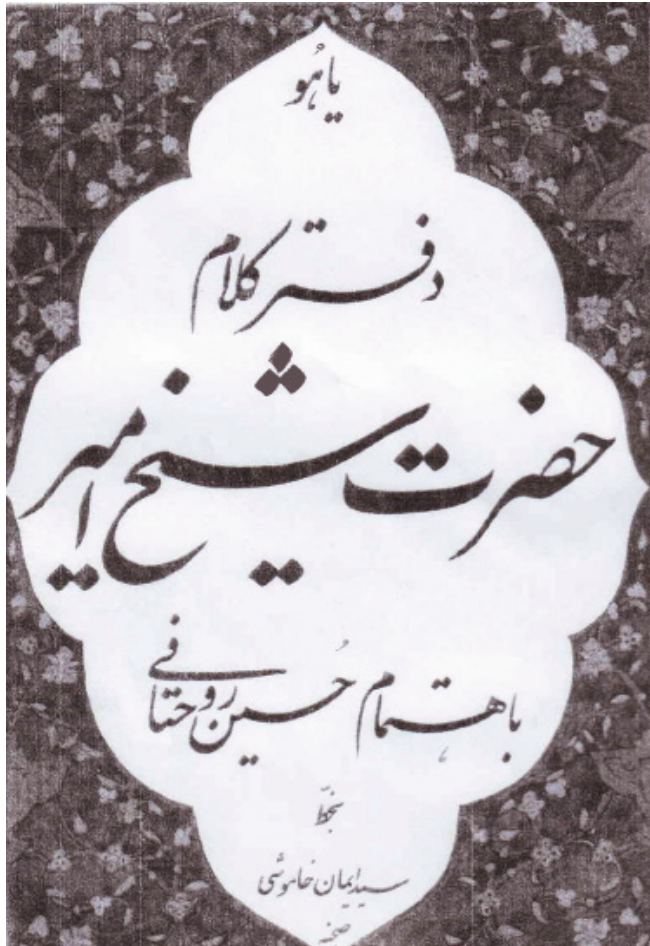 یا هُو
دفتر کلام
حضرت شیخ امیر
باهتمام حُسین روحتافی
بخطّ
سید ایمان خاموشی
صحنه